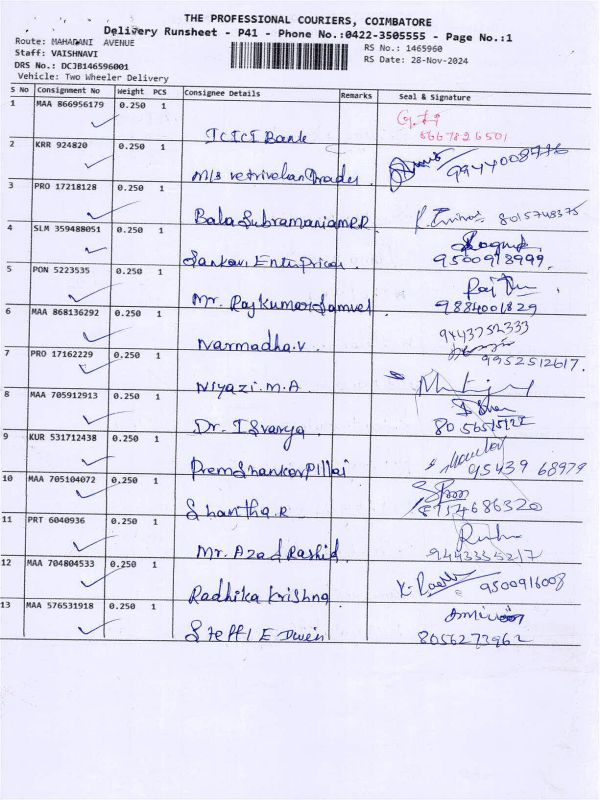 THE PROFESSIONAL COURIERS, COIMBATORE
Delivery Runsheet - P41 - Phone No.:0422-3505555 - Page No.:1
Route: MAHARANI AVENUE
RS No.: 1465960
Staff: VAISHNAVI
RS Date: 28-Nov-2024
DRS No.: DCJB146596001
Vehicle: Two Wheeler Delivery
S No Consignment No Weight PCS Consignee Details Remarks Seal & Signature
1 MAA 866956179 0.250 1
ICICI Bank 8667826501
2 KRR 924820 0.250 1
M/s vetrivelan Traders. 9944008776
3 PRO 17218128 0.250 1
Bala Subramaniam R.R 8015748375
4 SLM 359488051 0.250 1
Sankavi Enterprices. 9500918999
5 PON 5223535 0.250 1
Mr. Rajkumar Samuel 9884001829
6 MAA 868136292 0.250 1 9443752333
Narmadha.V
7 PRO 17162229 0.250 1 9952512617.
Niyazi.M.A
8 MAA 705912913 0.250 1
Dr. ISvarya
9 KUR 531712438 0.250 1
PremShankarPillai 95439 68979
10 MAA 705104072 0.250 1
Shantha.R 8754686320
11 PRT 6040936 0.250 1
Mr. Azad Rashid 9443355217
12 MAA 704804533 0.250 1
Radhika Krishna 9500916008
13 MAA 576531918 0.250 1
Steffi Edwin 8056273962